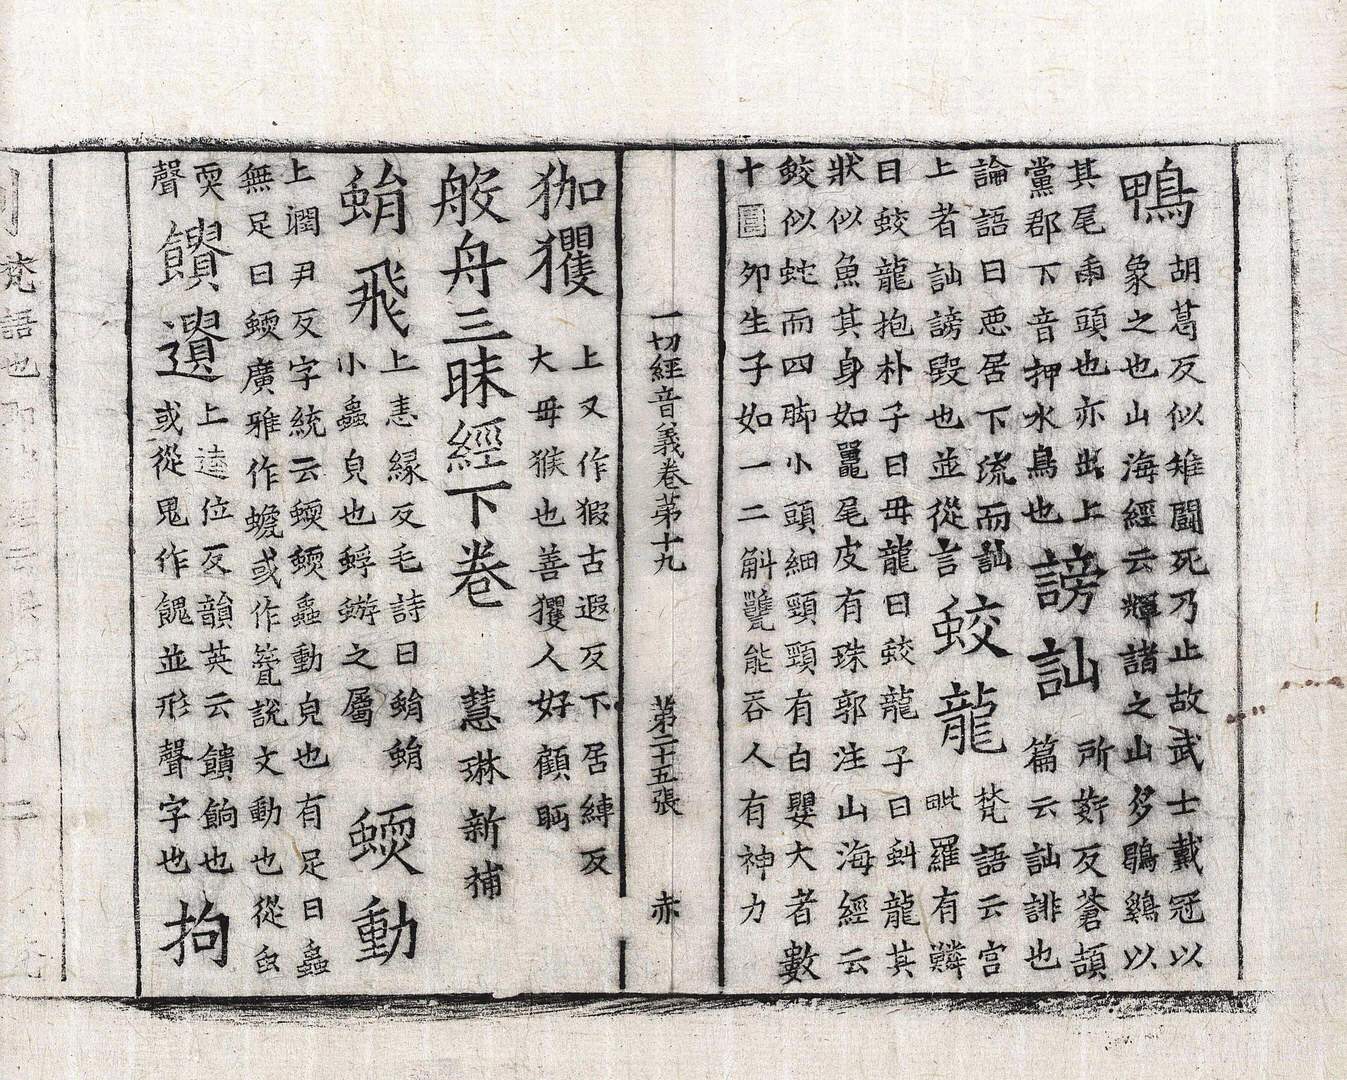 鴨 胡葛反似雉鬪死乃止故武士戴冠以
象之也山海經云輝諸之山多鶡鷄以
其尾兩頭也亦出上
黨郡下音押水鳥也 謗訕 所姧反蒼頡
篇云訕誹也
論語曰惡居下流而訕
上者訕謗毀也並從言 蛟龍 梵語云宫
毗羅有鱗
曰蛟龍抱朴子曰毋龍曰蛟龍子曰虯龍其
狀似魚其身如鼉尾皮有珠郭注山海經云
蛟似蛇而四脚小頭細頸頸有白嬰大者數
十圍卵生子如一二斛甕能吞人有神力
一切經音義卷第十九 第二十五張 赤
㹢玃 上又作猳古遐反下居縛反
大毋猴也善玃人好顧眄
般舟三昧經下卷 慧琳新補
蜎飛 上恚緣反毛詩曰蜎蜎
小蟲皃也蜉蝣之屬 蝡動
上潤尹反字統云蝡蝡蟲動皃也有足曰蟲
無足曰蝡廣雅作蠕或作說文動也從虫
耎
聲 饋遺 上逵位反韻英云饋餉也
或從鬼作餽並形聲字也 拘
梵語也